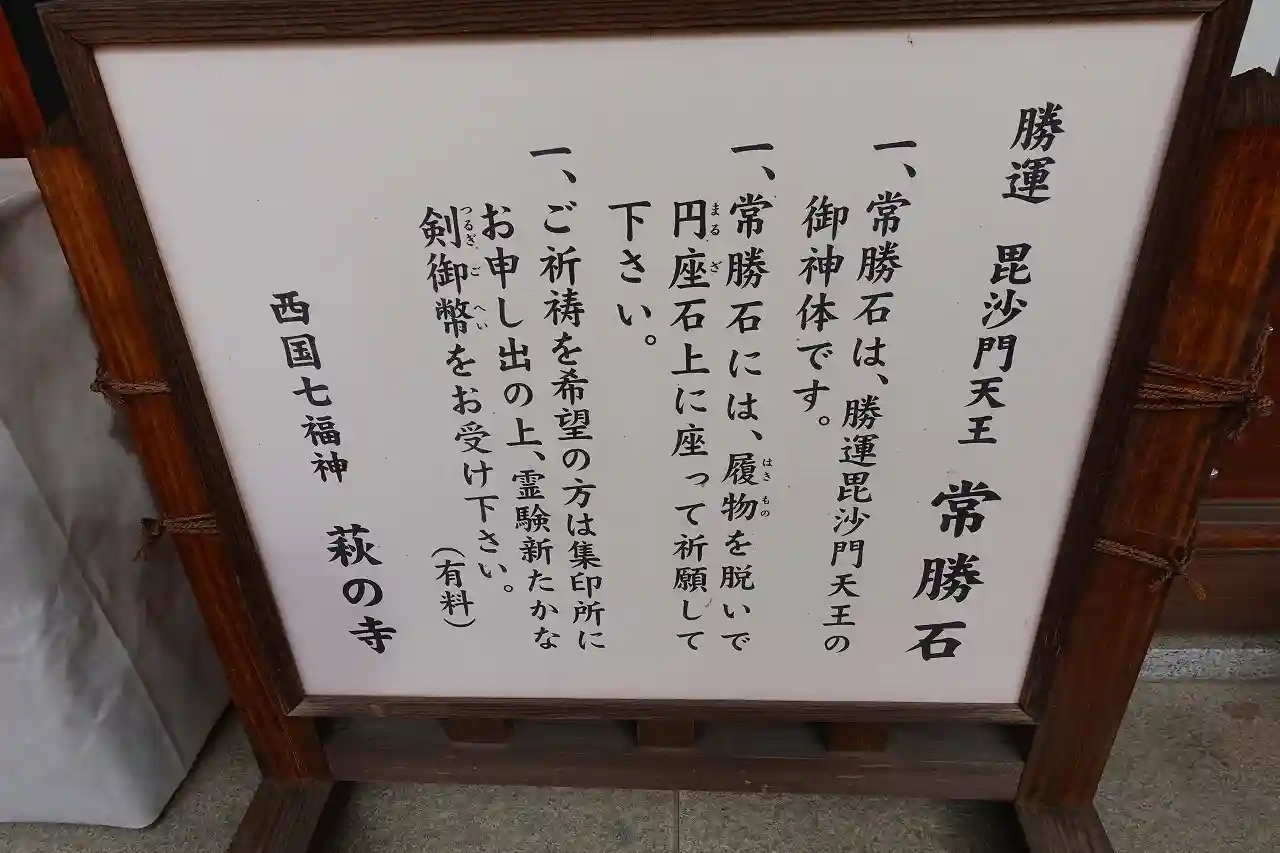 勝運 毘沙門天王 常勝石
一、常勝石は、勝運毘沙門天王の
御神体です。
一、常勝石には、履物を脱いで
円座石上に座って祈願して
下さい。
一、ご祈祷を希望の方は集印所に
お申し出の上、霊験新たかな
剣御幣をお受け下さい。
（有料）
西国七福神 萩の寺